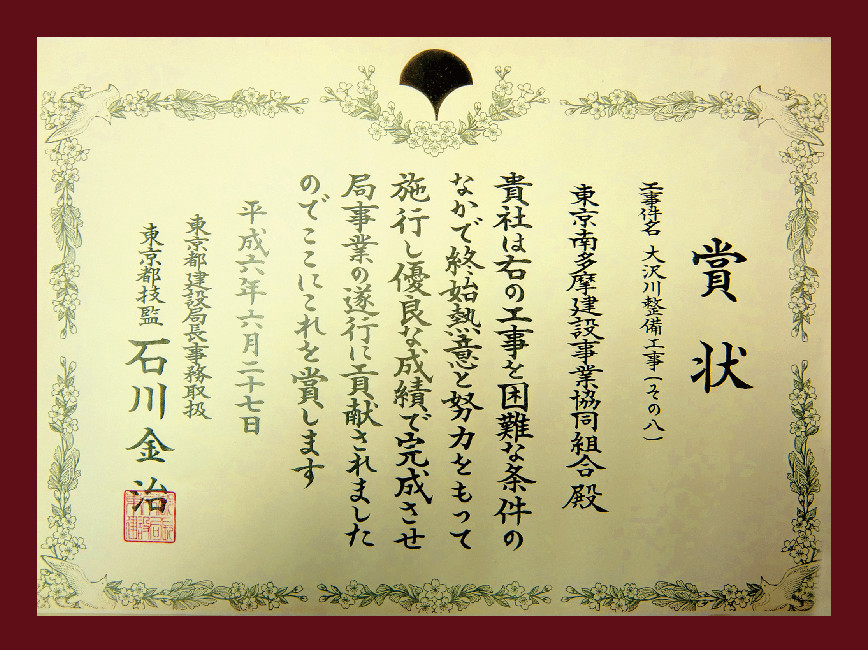 賞状
工事件名 大沢川整備工事(その八)
東京南多摩建設事業協同組合 殿
貴社は右の工事を困難な条件の
なかで終始熱意と努力をもって
施行し優良な成績で完成させ
局事業の遂行に貢献されました
のでここにこれを賞します
平成六年六月二十七日
東京都建設局長事務取扱
東京都技監 石川金治